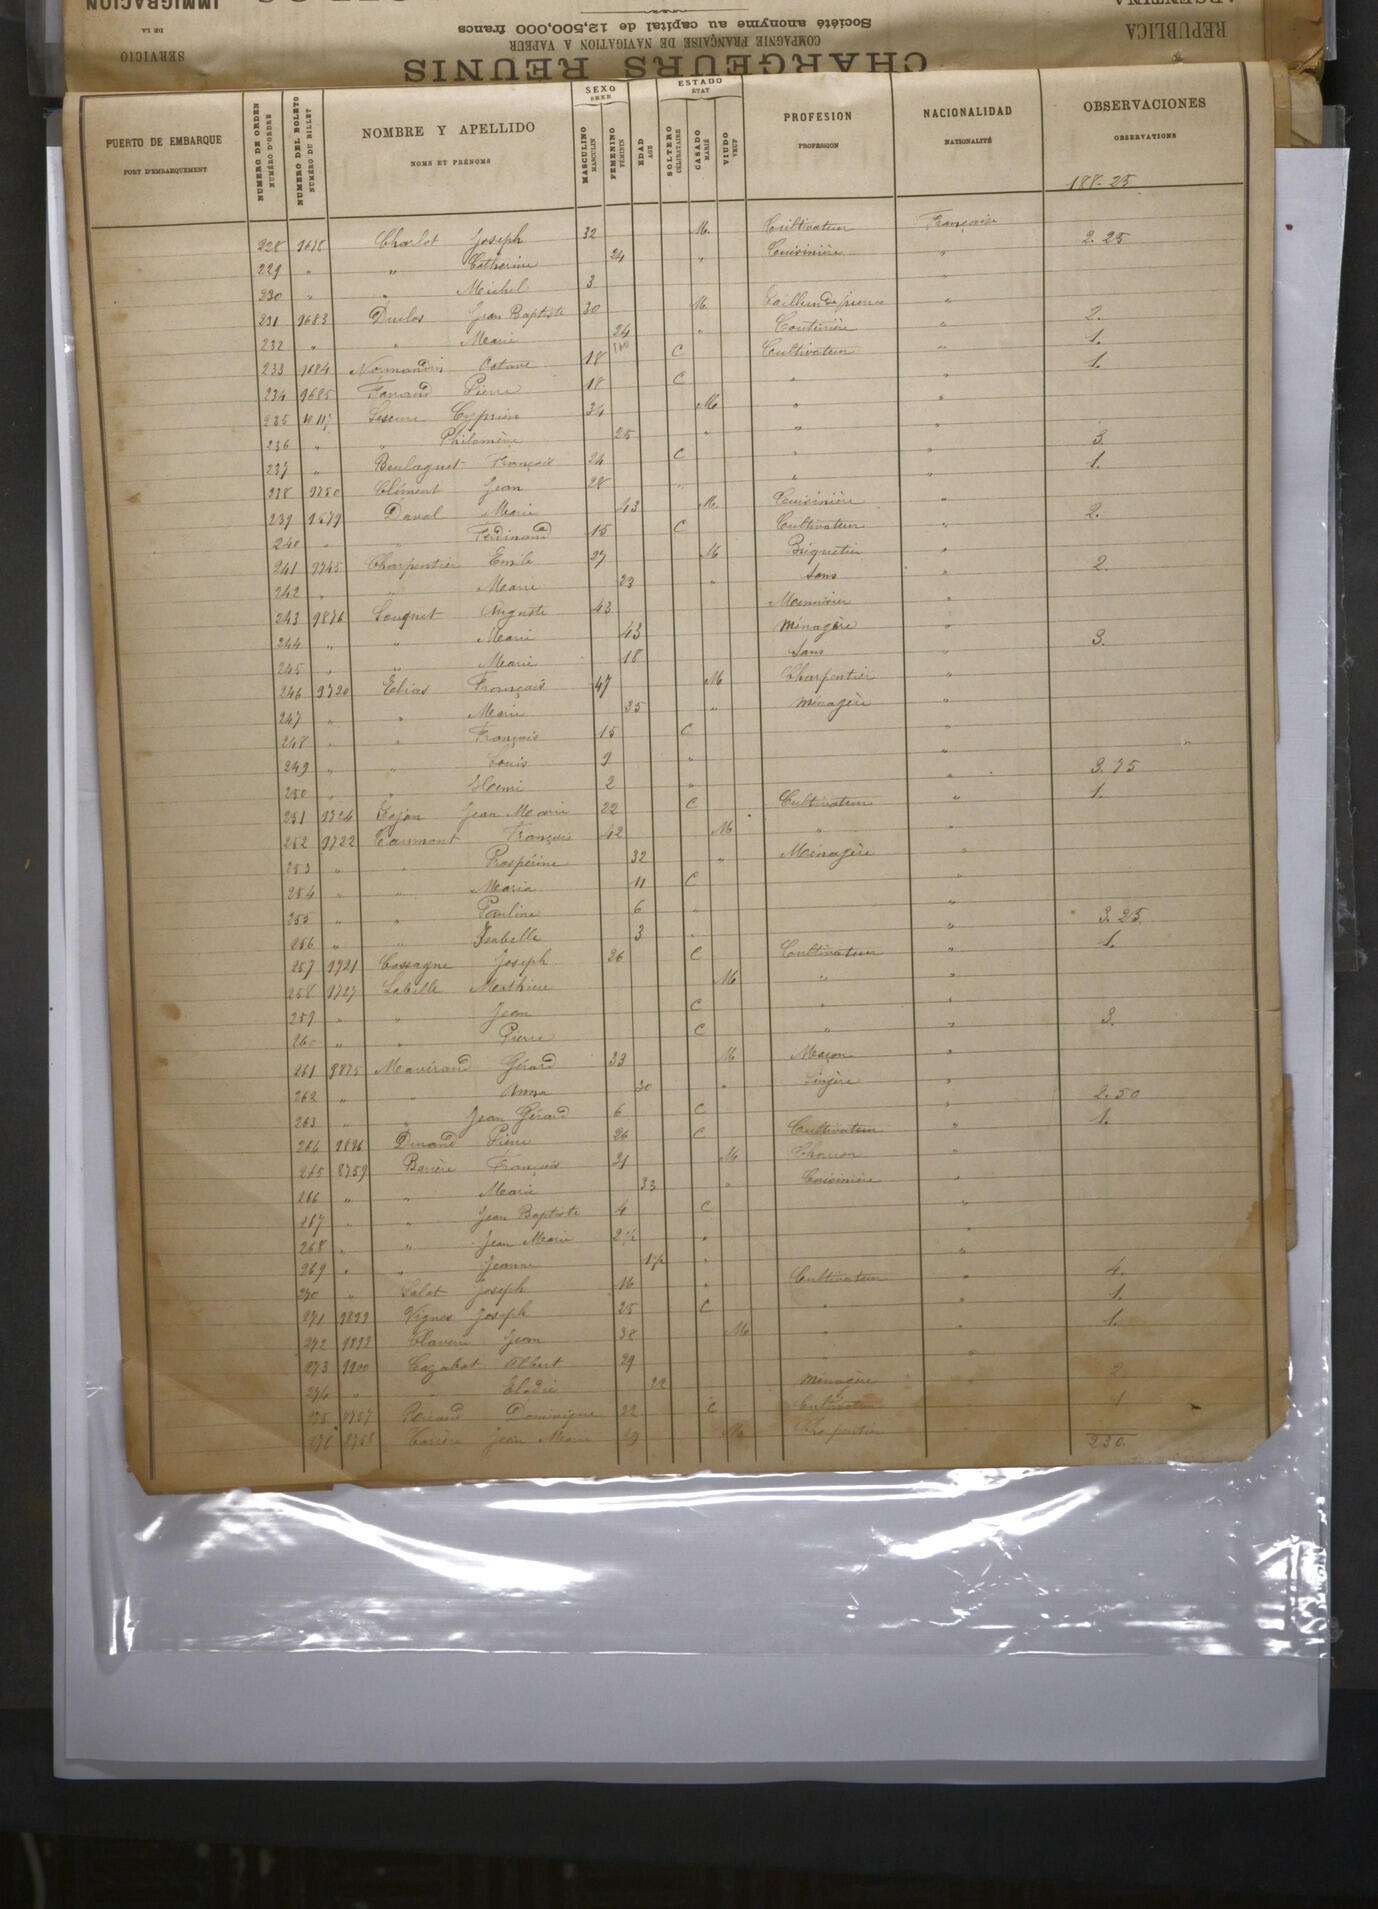 IMMIGRACION
DE LA
SERVICIO
ARGENTINA
REPUBLICA
Société anonyme au capital de 12,500,000 francs
COMPAGNIE FRANÇAISE DE NAVIGATION A VAPEUR
CHARGEURS REUNIS
PUERTO DE EMBARQUE NUMERO DE ORDEN NUMERO DEL BOLETO NOMBRE Y APELLIDO SEXO MASCULINO FEMENINO EDAD ESTADO SOLTERO CASADO VIUDO PROFESION NACIONALIDAD OBSERVACIONES
PORT D'EMBARQUEMENT NUMÉRO D'ORDRE NUMÉRO DU BILLET NOMS ET PRÉNOMS SEXE MASCULIN FÉMININ AGE ÉTAT CÉLIBATAIRE MARIÉ VEUF PROFESSION NATIONALITÉ OBSERVATIONS
188-25
228 9678 Charlot Joseph 32 M. Cultivateur Française
229 " " Catherine 24 " Cuisinière " 2.25
230 " " Michel 3 "
231 9683 Duclos Jean Baptiste 30 M. Tailleur de pierres "
232 " " Marie 24 " Couturière " 2.
233 9684 Normandin Octave 18 C Cultivateur " 1.
234 9685 Pierre 18 C " " 1.
235 10117 Lescure Cyprien 34 M. " "
236 " " Philomène 25 " " "
237 " François 24 C " " 3.
238 9750 Clément Jean 28 " " " 1.
239 9579 Daval Marie 43 M. Cuisinière "
240 " " Ferdinand 15 C Cultivateur " 2.
241 9745 Charpentier Emile 27 M Briquetier "
242 " " Marie 23 " Sans " 2.
243 9876 Souquet Auguste 43 Menuisier "
244 " " Marie 43 Ménagère "
245 " " Marie 18 Sans " 3.
246 9720 Elias François 47 M Charpentier "
247 " " Marie 35 " Ménagère "
248 " " François 15 C "
249 " " Louis 9 " " "
250 " " Henri 2 " " 3.75
251 9724 Jean Marie 22 C Cultivateur " 1.
252 9722 François 42 M " "
253 " " Prospérine 32 " Ménagère "
254 " " Maria 11 C "
255 " " Pauline 6 " "
256 " " Isabelle 3 " " 3.25
257 9721 Cassagne Joseph 26 C Cultivateur " 1.
258 9727 Labille Matthieu M " "
259 " " Jean C " "
260 " " Pierre C " " 3.
261 9875 Mavéraud Gérard 33 M Maçon "
262 " " Anna 30 " Lingère "
263 " " Jean Gérard 6 C " 2.50
264 9896 Durand Pierre 26 C Cultivateur " 1.
265 8759 Barière François 31 M Charron "
266 " " Marie 33 " Cuisinière "
267 " " Jean Baptiste 4 C "
268 " " Jean Marie 2½ " "
269 " " Jeanne 1½ " "
270 " Salat Joseph 16 " Cultivateur " 4.
271 9899 Vignes Joseph 25 C " " 1.
272 9898 Claverie Jean 38 M " " 1.
273 9900 Cazabat Albert 29 " "
274 " " Elodie 22 Ménagère " 2
275 9757 Dominique 22 C Cultivateur " 1
276 8758 Jean Marie 49 M Charpentier "
230.